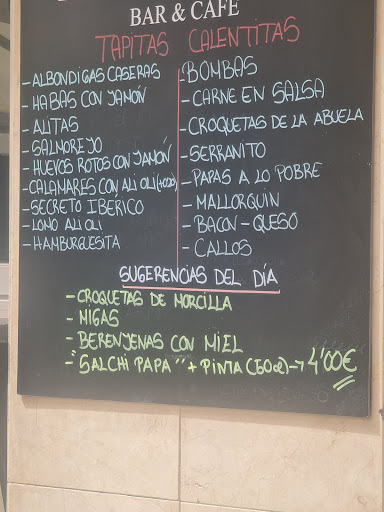 BAR & CAFE
TAPITAS CALENTITAS
- ALBONDIGAS CASERAS
- HABAS CON JAMÓN
- ALITAS
- SALMOREJO
- HUEVOS ROTOS CON JAMÓN
- CALAMARES CON ALI OLI
- SECRETO IBÉRICO
- LOMO ALI OLI
- HAMBURGUESITA
- BOMBAS
- CARNE EN SALSA
- CROQUETAS DE LA ABUELA
- SERRANITO
- PAPAS A LO POBRE
- MALLORQUIN
- BACON-QUESO
- CALLOS
SUGERENCIAS DEL DÍA
- CROQUETAS DE MORCILLA
- MIGAS
- BERENJENAS CON MIEL
- "SALCHI PAPA" + PINTA (50cl) → 4'00€